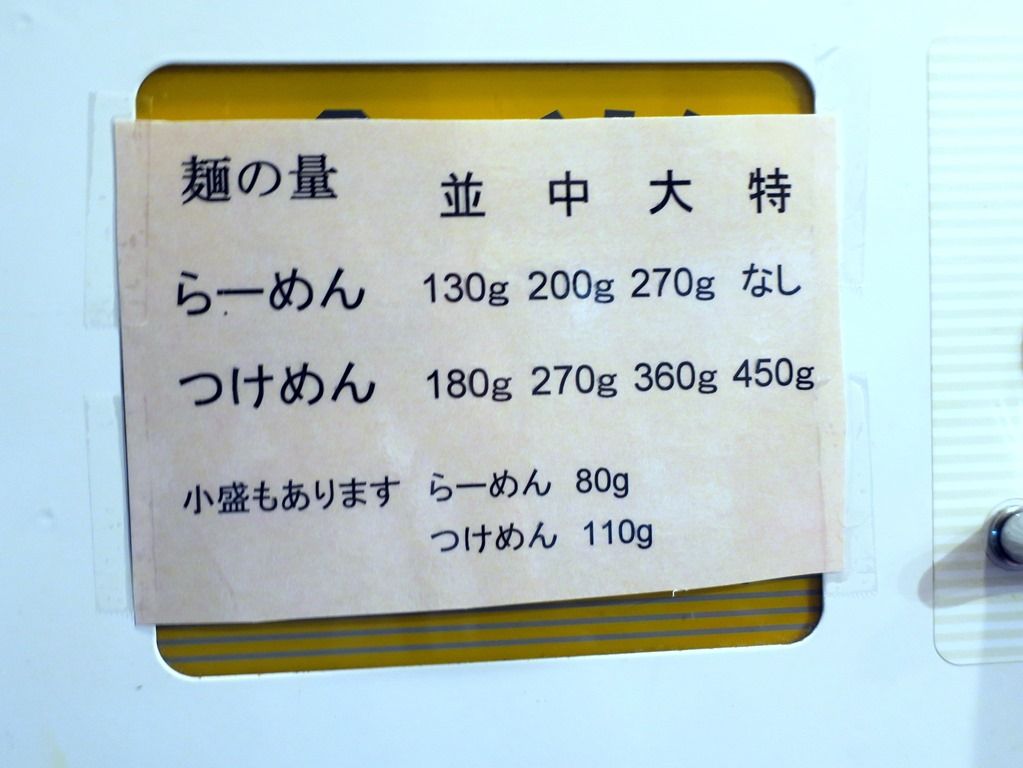 麺の量 並 中 大 特
らーめん 130g 200g 270g なし
つけめん 180g 270g 360g 450g
小盛もあります らーめん 80g
つけめん 110g